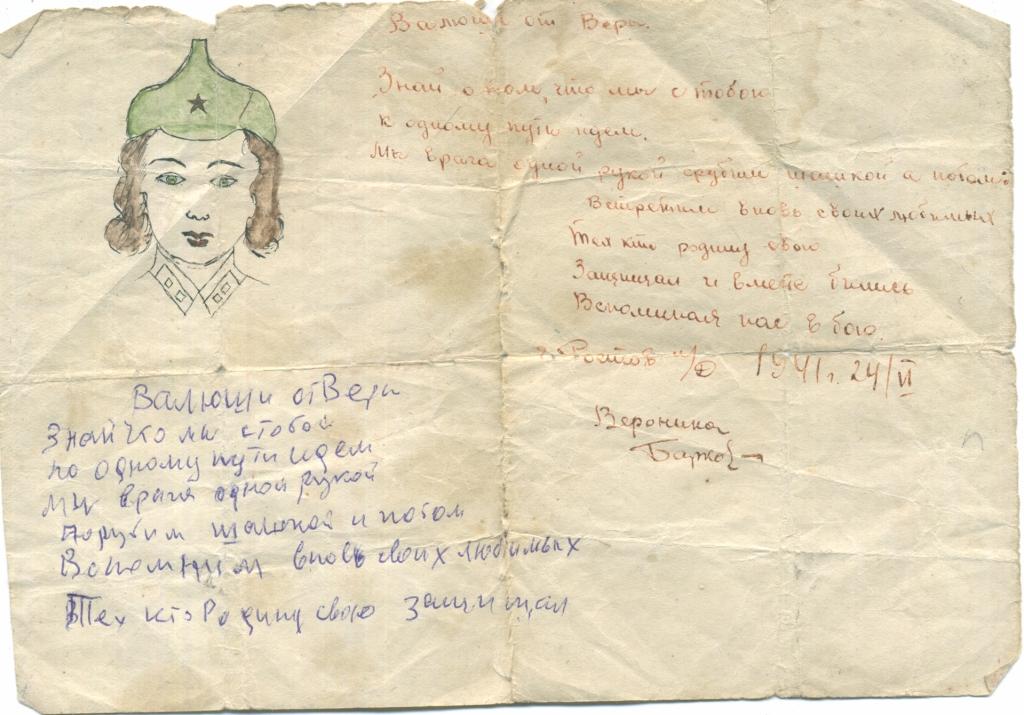 Валюши от Веры.
Знай о том, что мы с тобою
к одному пути идем.
Мы врага одной рукой срубим шашкой а потом
Встретим вновь своих любимых
Тех кто родину свою
Защищал и вместе бились
Вспоминая нас в бою.
г. Ростов н/Д 1941г. 24/VI
Вероника
Валюши от Веры
Знай что мы с тобой
по одному пути идем
Мы врага одной рукой
порубим шашкой и потом
Вспомним вновь своих любимых
Тех кто Родину свою защищал